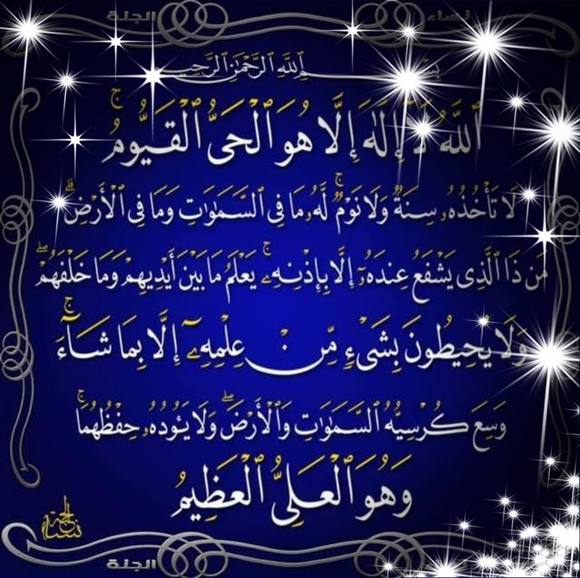 نساء الجنة
بسم ٱللَّهِ ٱلرَّحْمَٰنِ ٱلرَّحِيمِ
ٱللَّهُ لَآ إِلَٰهَ إِلَّا هُوَ ٱلْحَىُّ ٱلْقَيُّومُ ۚ
لَا تَأْخُذُهُۥ سِنَةٌ وَلَا نَوْمٌ ۚ لَّهُۥ مَا فِى ٱلسَّمَٰوَٰتِ وَمَا فِى ٱلْأَرْضِ ۗ
مَن ذَا ٱلَّذِى يَشْفَعُ عِندَهُۥٓ إِلَّا بِإِذْنِهِۦ ۚ يَعْلَمُ مَا بَيْنَ أَيْدِيهِمْ وَمَا خَلْفَهُمْ ۖ
وَلَا يُحِيطُونَ بِشَىْءٍ مِّنْ عِلْمِهِۦٓ إِلَّا بِمَا شَآءَ ۚ
وَسِعَ كُرْسِيُّهُ ٱلسَّمَٰوَٰتِ وَٱلْأَرْضَ ۖ وَلَا يَـُٔودُهُۥ حِفْظُهُمَا ۚ
وَهُوَ ٱلْعَلِىُّ ٱلْعَظِيمُ
نساء الجنة
الجنة